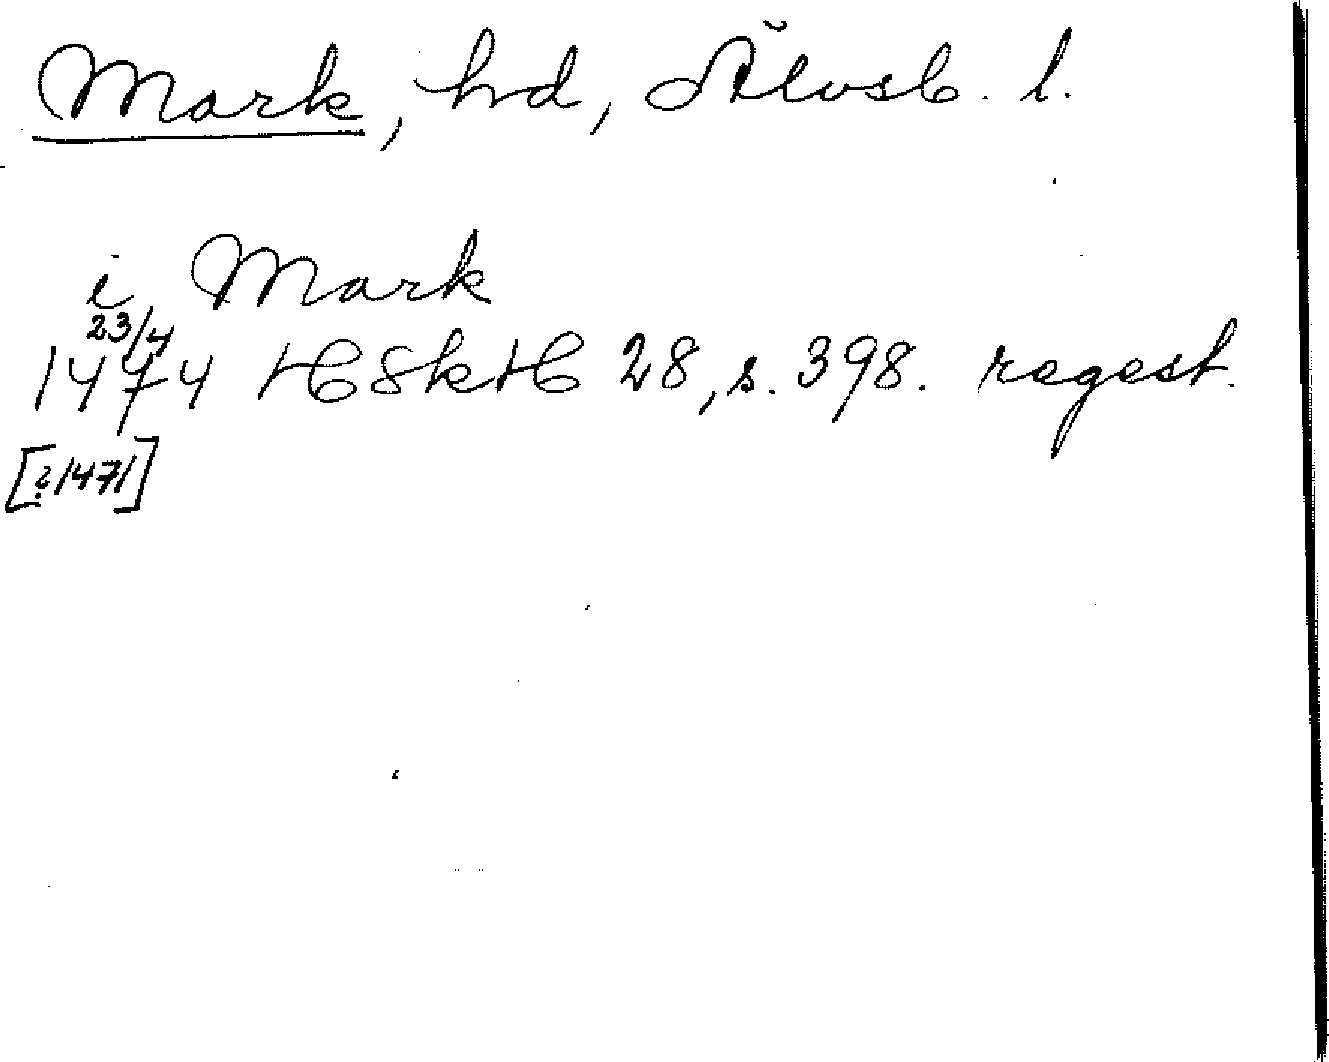 Mark, hd, Älvsb. l.
i Mark
23/4
1474 HSkH 28, s. 398. regest.
[?1471]